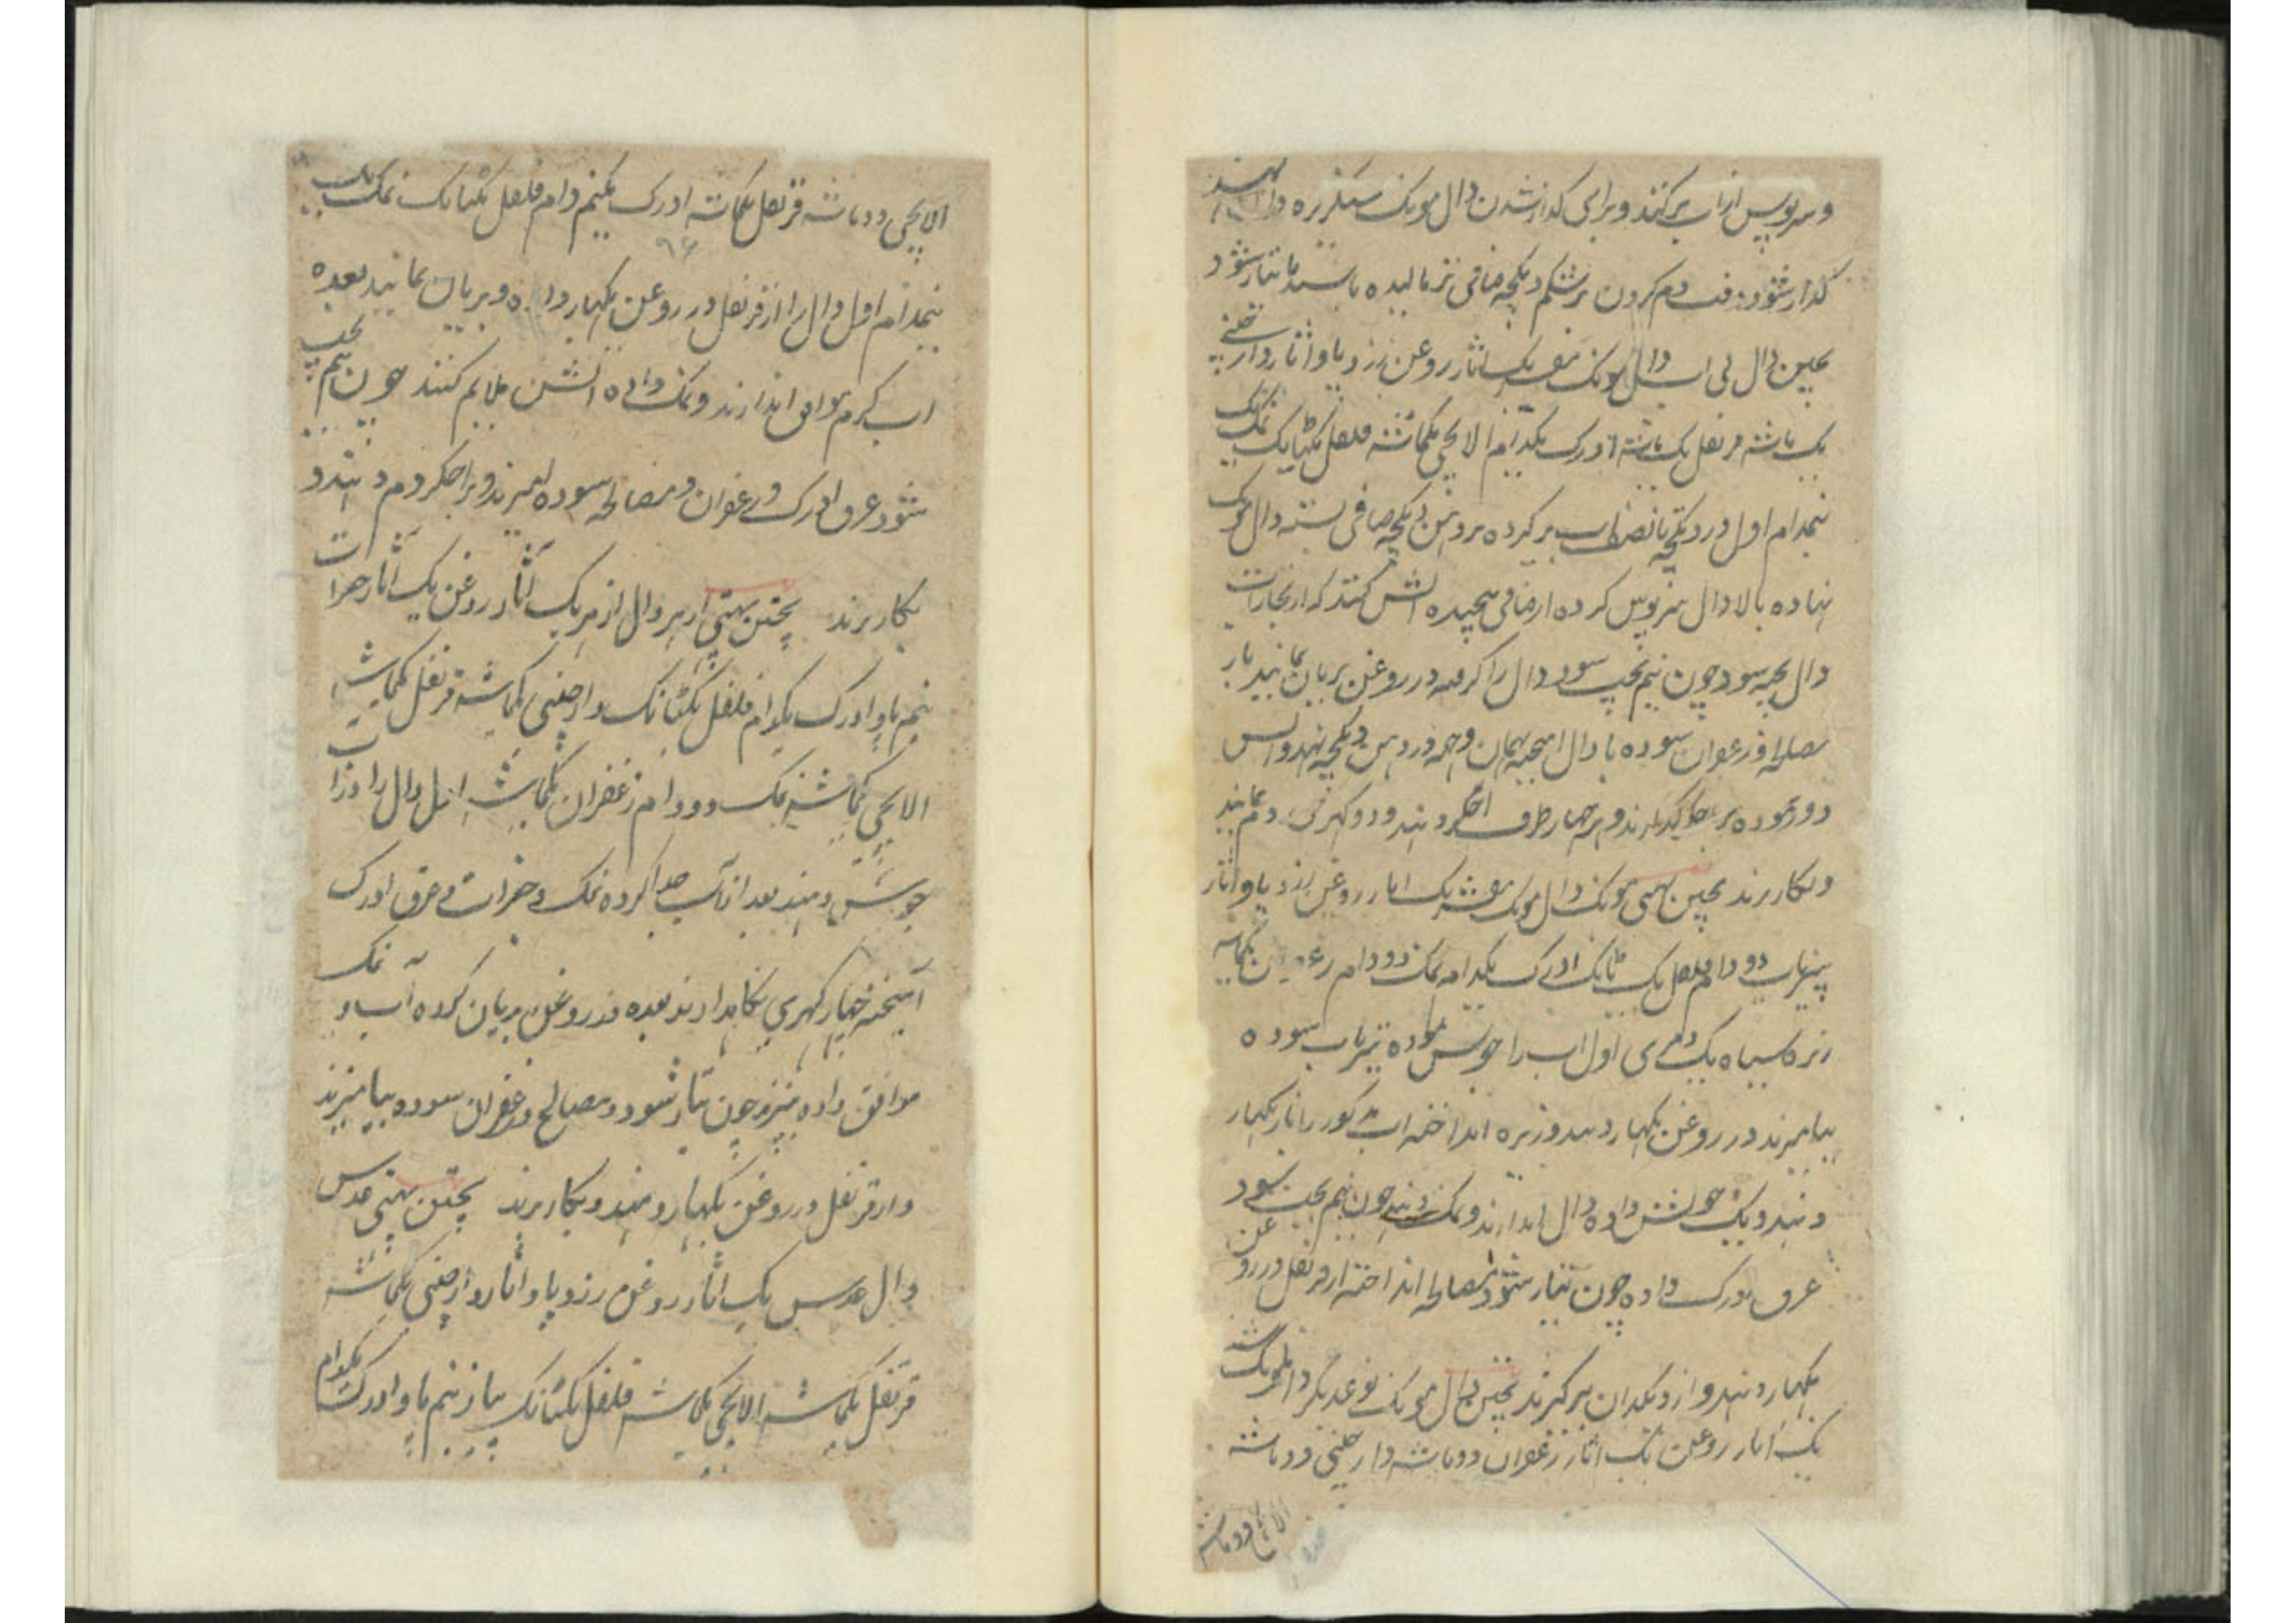 و سرپوس از آب پر کنند و برای گداز شدن دال مونک سنگریزه دا نهند
گداز شود وقت دم کردن بر شکم دیکچه صافی تر مالیده باشند تا تیار شود
پختن دال بی آب دال مونک مقشر یک اثار روغن زرد پاو اثار دارچینی
یک ماشه قرنفل یک ماشه ادرک یکدام الایچی یکماشه فلفل یکٹانک نمک
نیمدام اول در دیکچه تا نصف آب پر کرده بر دهن دیکچه صافی بسته دال مونک
نهاده بالا دال سرپوس کرده از صافی پیچیده آتش کنند که از بخارات
دال پخته شود چون نیم پخت شود دال را گرفته در روغن بریان نمایند باز
مصالحه و زعفران سوده با دال آمیخته بهمان وجه در دهن دیکچه نهند و آتش
دور نموده بر اخگر گذارند و بر چهار طرف اخگر دهند و دو گهری دم نمایند
و بکار برند پختن بهتی مونک دال مونک مقشر یک اثار روغن زرد پاو اثار
پیاز دو دام فلفل یک ٹانک ادرک یکدام نمک دو دام زعفران یکماشه
زیره سیاه یک دمڑی اول آب را جوش نموده سوده
بیامیزند در روغن بگهار دهند و زیره انداخته آب مذکور را باز بگهار
دهند و یک جوش داده دال اندازند و نمک دهند چون نیم پخت شود
عرق ادرک داده چون تیار شود مصالحه انداخته از قرنفل در روغن
بگهار دهند و از دیگدان برگیرند پختن دال مونک نوع دیگر دال مونک
یک اثار روغن یک اثار زعفران دو ماشه دارچینی دو ماشه
الایچی دو ماشه
الایچی دو ماشه قرنفل یکماشه ادرک یکنیم دام فلفل یکٹانک نمک یک
۹۶
نیمدام اول دال را از قرنفل در روغن بگهار داده و بریان نمایند بعده
آب گرم موافق اندازند و نمک داده آتش ملایم کنند چون نیم پخت
شود عرق ادرک و زعفران و مصالحه سوده آمیزند و بر اخگر دم دهند و
بکار برند پختن بهتی ارهر دال ارهر یک اثار روغن یک اثار جغرات
نیم پاو ادرک یکدام فلفل یکٹانک دارچینی یکماشه قرنفل یکماشه
الایچی یکماشه نمک دو دام زعفران یکماشه اول دال را در آب
جوش دهند بعد از آب جدا کرده نمک و جغرات و عرق ادرک
آمیخته چهار گهری نگاهدارند بعده در روغن بریان کرده آب و نمک
موافق داده بپزند چون تیار شود مصالح و زعفران سوده بیامیزند
و از قرنفل در روغن بگهار دهند و بکار برند پختن بهتی عدس
دال عدس یک اثار روغن زرد پاو اثار دارچینی یکماشه
قرنفل یکماشه الایچی یکماشه فلفل یکٹانک پیاز نیم پاو ادرک یکدام